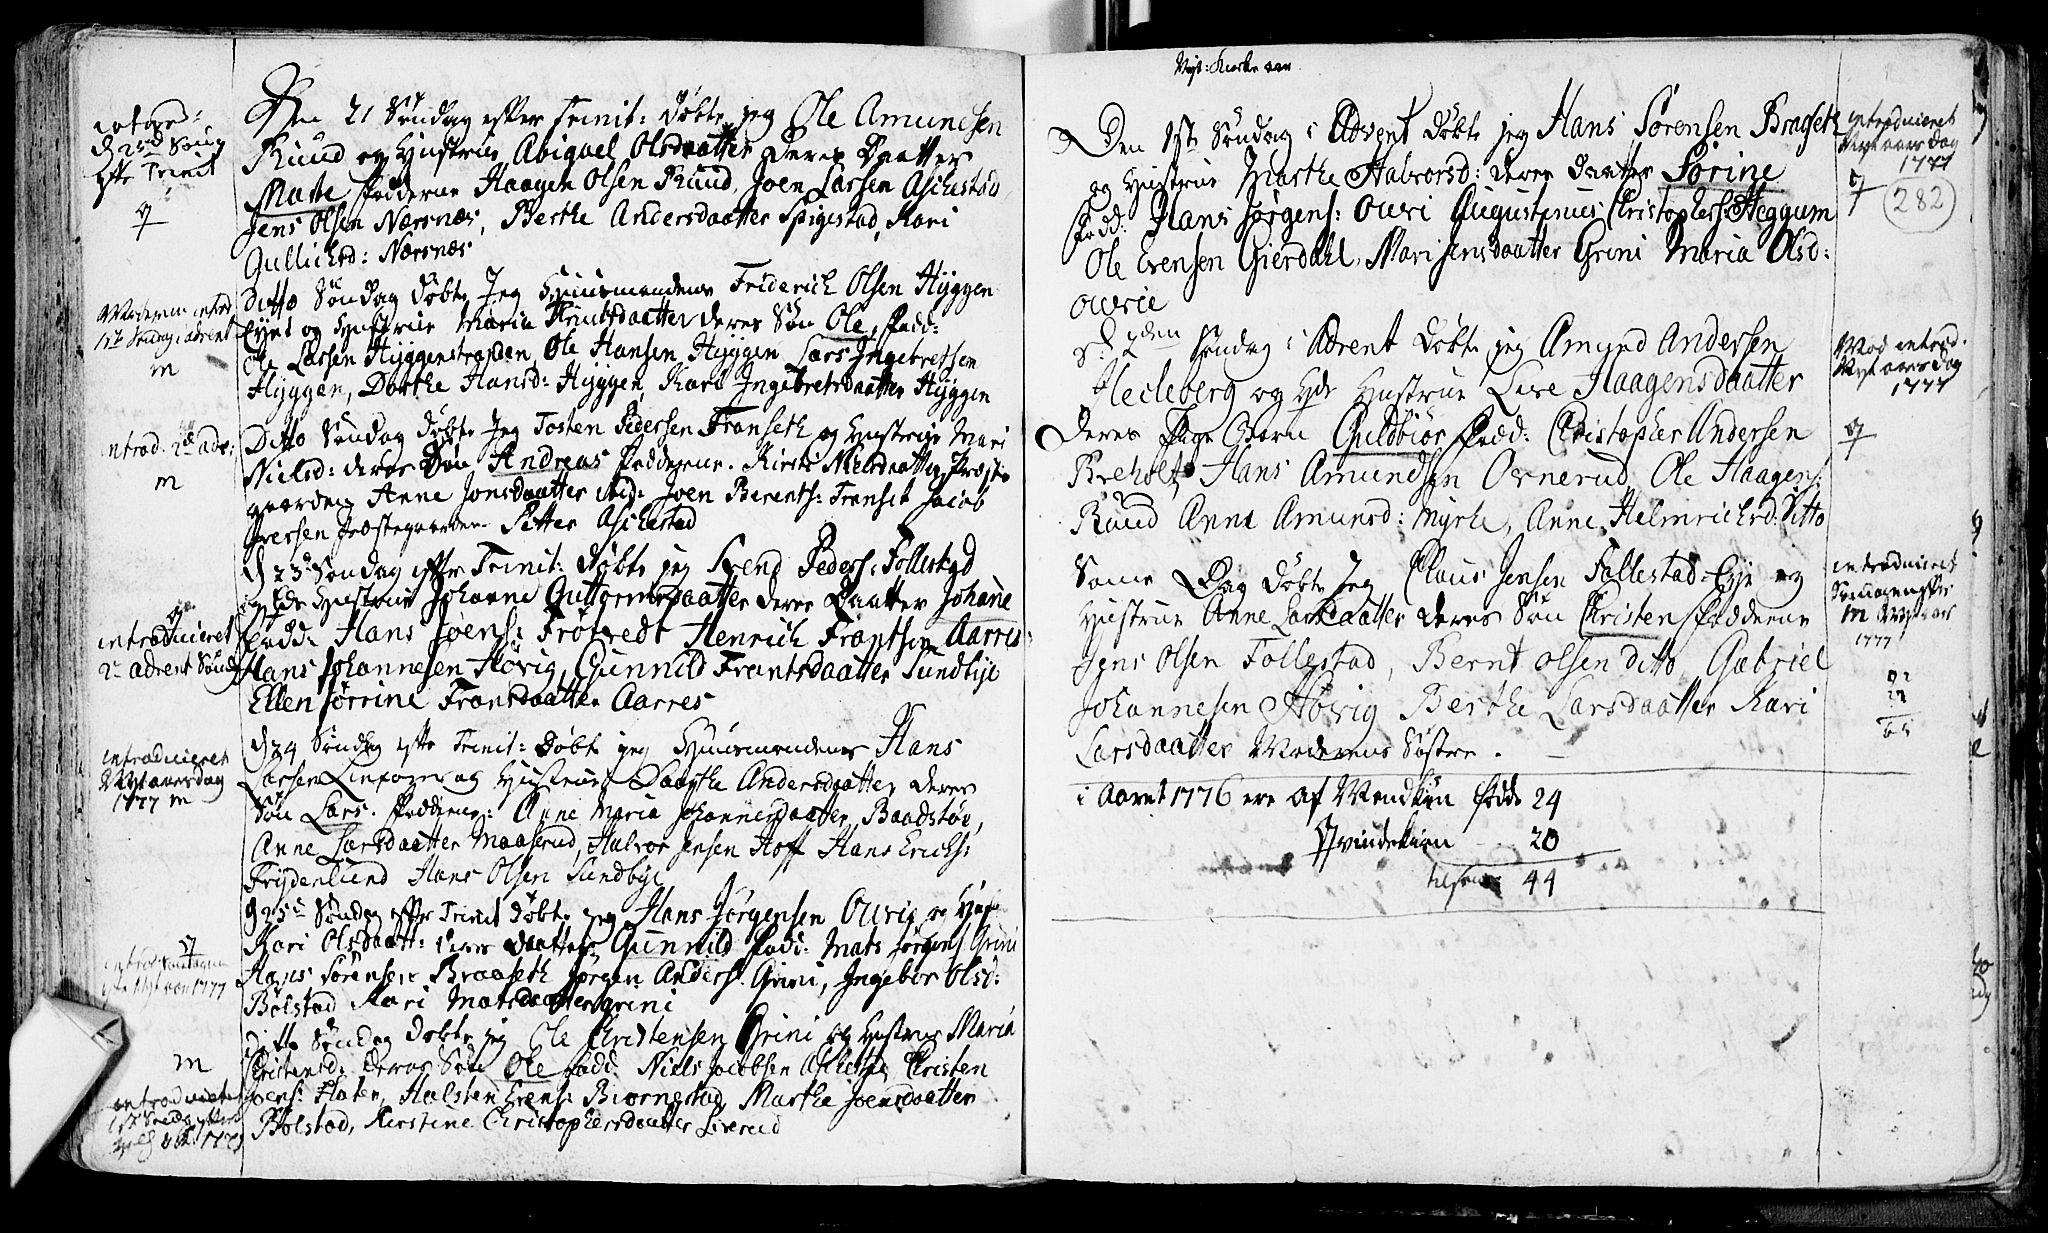 introd:
d 22 Søndag
efter Trinit
q
Den 21 Søndag efter Trinit: døbte jeg Ole Amundsen
Ruud og Hustrue Abigael Olsdaatter deres Daatter
Marte Fadderne Haagen Olsen Ruud, Joen Larsen Aschestad
Jens Olsen Nærsnæs, Berthe Andersdaatter Spigestad, Kari
Gullichsd: Nærsnæs
Moderen introd
1ste Søndag i advent
m
Ditto Søndag døbte Jeg Huusmandens Friderich Olsen Hyggen
Eyet og Hustrue Maria Knutsdaatter deres Søn Ole, Fadd:
Ole Larsen Hyggenstranden, Ole Hansen Hyggen Lars Ingebretsen
Hyggen, Dorthe Hansd: Hyggen, Kari Ingebretsdaatter Hyggen
introd. 2den adv:
m
Ditto Søndag døbte Jeg Tosten Pedersen Franseth og Hustrue Mari
Nielsd: deres Søn Andreas Fadderne. Kirsti Nielsdaatter Præste
gaarden Anne Jonsdaatter ibid: Joen Berents: Franset Jacob
Iversen Præstegaarden Petter Aschestad
q
introduceret
2den advent Søndag
d 23de Søndag efter Trinit: døbte jeg Svend Peders: Follestad
og Hustrue Johanne Guttormsdaatter deres Daatter Johane
Fadd: Hans Joens: Frøtvedt Henrich Frantsen Aarres
Hans Johannesen Høvig, Gunnild Frantsdaatter Sundbye
Ellen Sørrine Frantsdaatter Aarres
introduceret
Nytaarsdag
1777 m
d 24 Søndag efter Trinit: døbte jeg Huusmandens Hans
Larsen og Hustrue Dorthe Andersdaatter deres
Søn Lars. Fadderne: Anne Maria Johannesdaatter, Baadstøe,
Anne Larsdaatter Maaserud, Halvor Jensen Hoff Hans Erichs:
Frydenlund Hans Olsen Sundbye
q
introd: Søndagen
efter Nytaar 1777
d 25de Søndag efter Trinit døbte jeg Hans Jørgensen Ovrie og Hust
Kari Olsdaatt: deres daatter Gunnild Fadd: Mats Jørgens: Grini
Hans Sørensen Braaseth Jørgen Anders: Grini, Ingebor Olsd:
Bølstad Kari Matsdaatter grini
m
introduceret
Ditto Søndag døbte jeg Ole Christensen Grini og Hustrue Maria
Christensd: deres Søn Ole Fadd: Niels Jacobsen Christen
Joens: Flaten, Halsten Evens: Biørnestad Marthe Joensdaatter
Bølstad, Kirstine Christophersdaatter Liverud
Nyt: Kirke aar
Den 1ste Søndag i Advent døbte jeg Hans Sørensen Braaset
og Hustrue Marthe Halvorsd: deres daatter Sørine
Fadd: Hans Jørgens: Ovri Augustinus Christophers: Heggum
Ole Evensen Gierdahl, Mari Jensdaatter Grini Maria Olsd:
ovrie
introduceret
Nytaarsdag
1777
q
282
d: 2den Søndag i Advent døbte jeg Amund Andersen
Hecleberg og Hustrue Live Haagensdaatter
deres Pige Barn Guldbiør Fadd: Christopher Andersen
Breholt Hans Amundsen Ovnerud, Ole Haagens:
Ruud Anne Amunsd: Myhre, Anne Helmrichsd: Ditto
Mod introd.
Nytaarsdag
1777
q
Same Dag døbte Jeg Claus Jensen Follestad-Eye og
Hustrue Anne Larsdaatter deres Søn Christen Fadderne
Jens Olsen Follestad, Bernt Olsen Ditto Gabriel
Johannesen Høvig Berthe Larsdaatter Kari
Larsdaatter Moderens Søstre.
introduceret
Søndagen efter
m Nytaar
1777
i Aaret 1776 ere Af Mandkiøn fødde 24
Qvindekiøn 20
tilsam: 44